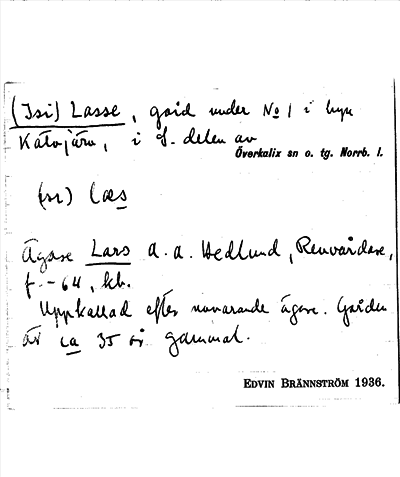 (Isi) Lasse, gård under No 1 i byn
Kätäjärv, i S. delen av
Överkalix sn o. tg. Norrb. l.
(sr) læs
Ägare Lars A. A. Hedlund, Renvårdare,
f. -64, kb.
Uppkallad efter nuvarande ägare. Gården
är ca 35 år gammal.
EDVIN BRÄNNSTRÖM 1936.